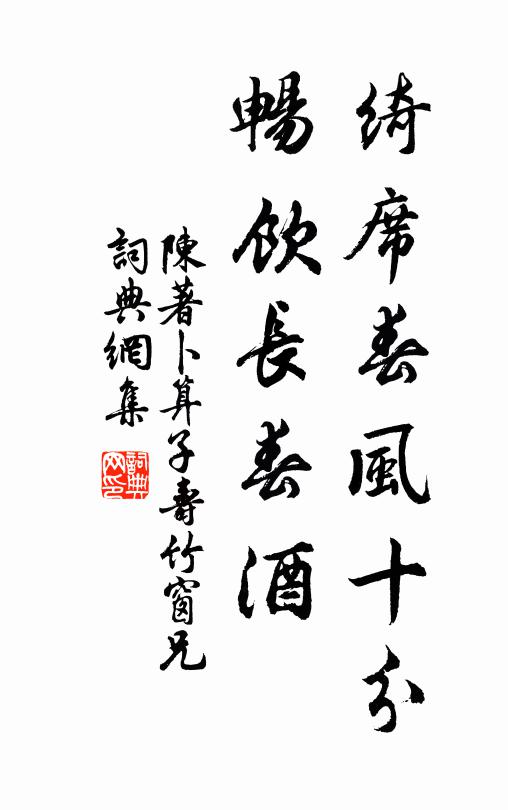 綺席春風十分
暢飲長春酒
陳著卜算子壽竹窗兄
詞典網集
詞典網印